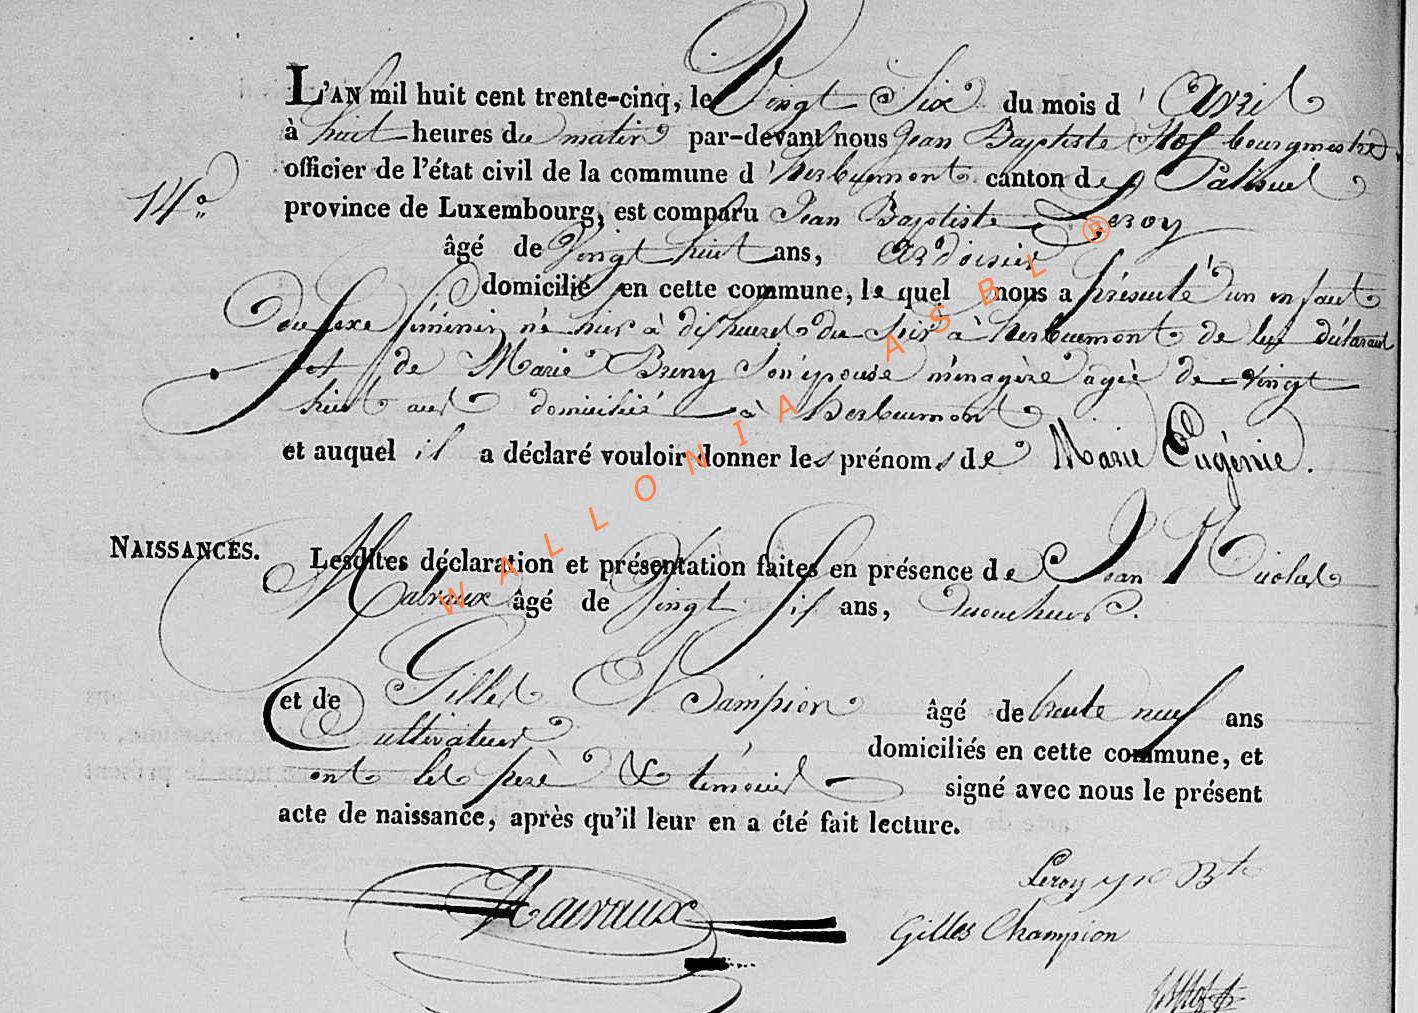 L'AN mil huit cent trente-cinq, le Vingt Six du mois d' Avril
à huit heures du matin par-devant nous Jean Baptiste Hof bourgmestre
officier de l'état civil de la commune d'herbeumont canton de Paliseul
14e
province de Luxembourg, est comparu Jean Baptiste Leroy
âgé de Vingt huit ans, Ardoisier
domicilié en cette commune, le quel nous a présenté un enfant
du sexe féminin né hier à dix heures du soir à herbeumont de lui déclarant
et de Marie Breny son épouse ménagère agée de vingt
huit ans domiciliée à herbeumont
et auquel il a déclaré vouloir donner les prénoms de Marie Eugénie.
NAISSANCES.
Lesdites déclaration et présentation faites en présence de Jean Nicolas
âgé de Vingt six ans,
et de Gilles Champion âgé de trente neuf ans
Cultivateur domiciliés en cette commune, et
ont les père & témoins signé avec nous le présent
acte de naissance, après qu'il leur en a été fait lecture.
Leroy Bte
Gilles Champion
WALLONIA ASBL ®